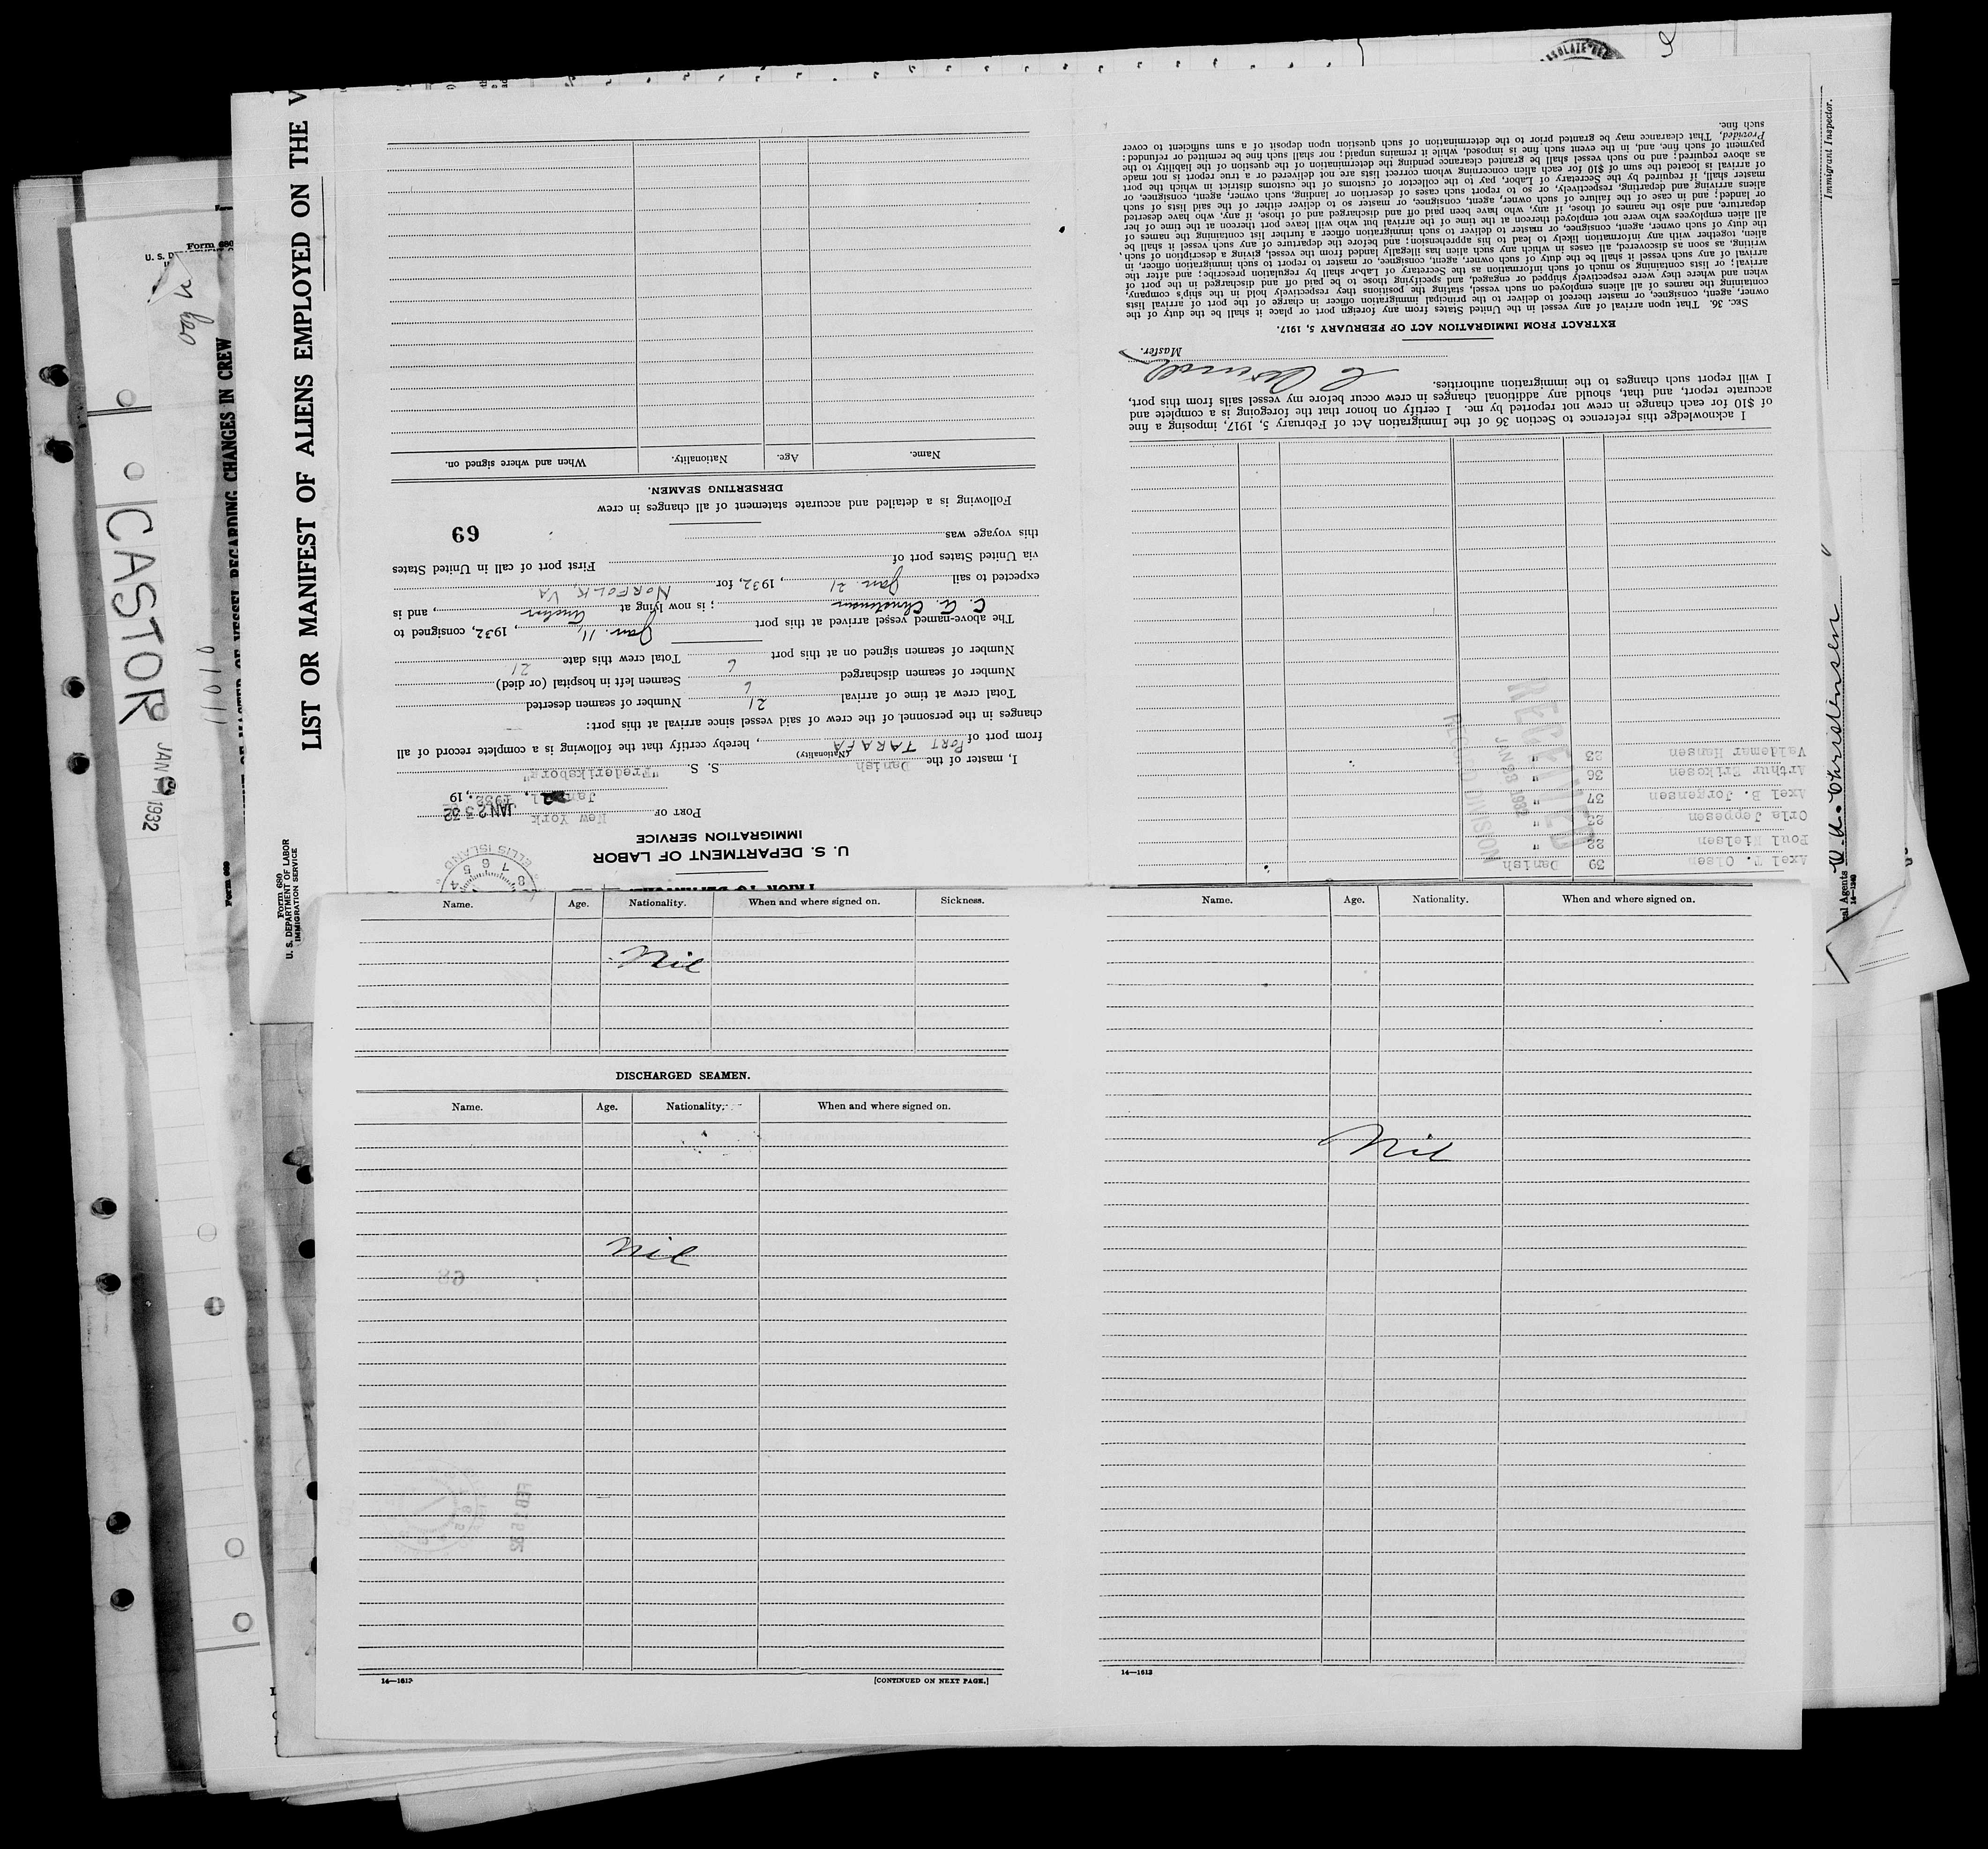 U. S. DEPARTMENT OF LABOR
IMMIGRATION SERVICE
PORT OF New York JAN 23 32
Jan 21, 1932, 19
I, master of the Danish S. S. "Frederiksborg"
(Nationality)
from port of PORT TARAFA, hereby certify that the following is a complete record of all
changes in the personnel of the crew of said vessel since arrival at this port:
Total crew at time of arrival 21 Number of seamen deserted
Number of seamen discharged 6 Seamen left in hospital (or died)
Number of seamen signed on at this port 6 Total crew this date 21
The above-named vessel arrived at this port Jan. 11, 1932, consigned to
C. A. Christensen; is now lying at , and is
expected to sail Jan. 21, 1932, for NORFOLK, VA
via United States port of First port of call in United States
this voyage was
69
Following is a detailed and accurate statement of all changes in crew
DERSERTING SEAMEN.
Name. Age. Nationality. When and where signed on.
Axel T. Olsen 39 Danish
Poul Nielsen 22 "
Orle Jeppesen 23 "
Axel B. Jorgensen 37 "
Arthur Eriksen 36 "
Valdemar Hansen 23 "
RECEIVED
JAN 23 1932
RECORD DIVISION
I acknowledge this reference to Section 36 of the Immigration Act of February 5, 1917, imposing a fine
of $10 for each change in crew not reported by me. I certify on honor that the foregoing is a complete and
accurate report, and that, should any additional changes in crew occur before my vessel sails from this port,
I will report such changes to the immigration authorities.
Master.
EXTRACT FROM IMMIGRATION ACT OF FEBRUARY 5, 1917.
SEC. 36. That upon arrival of any vessel in the United States from any foreign port or place it shall be the duty of the
owner, agent, consignee, or master thereof to deliver to the principal immigration officer in charge of the port of arrival lists
containing the names of all aliens employed on such vessel, stating the positions they respectively hold in the ship's company,
when and where they were respectively shipped or engaged, and specifying those to be paid off and discharged in the port of
arrival; or lists containing so much of such information as the Secretary of Labor shall by regulation prescribe; and after the
arrival of any such vessel it shall be the duty of such owner, agent, consignee, or master to report to such immigration officer, in
writing, as soon as discovered, all cases in which any such alien has illegally landed from the vessel, giving a description of such
alien, together with any information likely to lead to his apprehension; and before the departure of any such vessel it shall be
the duty of such owner, agent, consignee, or master to deliver to such immigration officer a further list containing the names of
all alien employees who were not employed thereon at the time of the arrival but who will leave port thereon at the time of her
departure, and also the names of those, if any, who have been paid off and discharged and of those, if any, who have deserted
or landed; and in case of the failure of such owner, agent, consignee, or master so to deliver either of the said lists of such
aliens arriving and departing, respectively, or so to report such cases of desertion or landing, such owner, agent, consignee, or
master shall, if required by the Secretary of Labor, pay to the collector of customs of the customs district in which the port
of arrival is located the sum of $10 for each alien concerning whom correct lists are not delivered or a true report is not made
as above required; and no such vessel shall be granted clearance pending the determination of the question of the liability to the
payment of such fine, and, in the event such fine is imposed, while it remains unpaid; nor shall such fine be remitted or refunded:
Provided, That clearance may be granted prior to the determination of such question upon deposit of a sum sufficient to cover
such fine.
Name. Age. Nationality. When and where signed on. Sickness.
Nil
DISCHARGED SEAMEN.
Name. Age. Nationality. When and where signed on.
Nil
14—1613
[CONTINUED ON NEXT PAGE.]
Name. Age. Nationality. When and where signed on.
Nil
14—1613
LIST OR MANIFEST OF ALIENS EMPLOYED ON THE V
Form 680
U. S. DEPARTMENT OF LABOR
IMMIGRATION SERVICE
CASTOR
JAN 1932
REGARDING CHANGES IN CREW
Form 680
Immigrant Inspector.
al Agents
Christensen
14—1240
ELLIS ISLAND